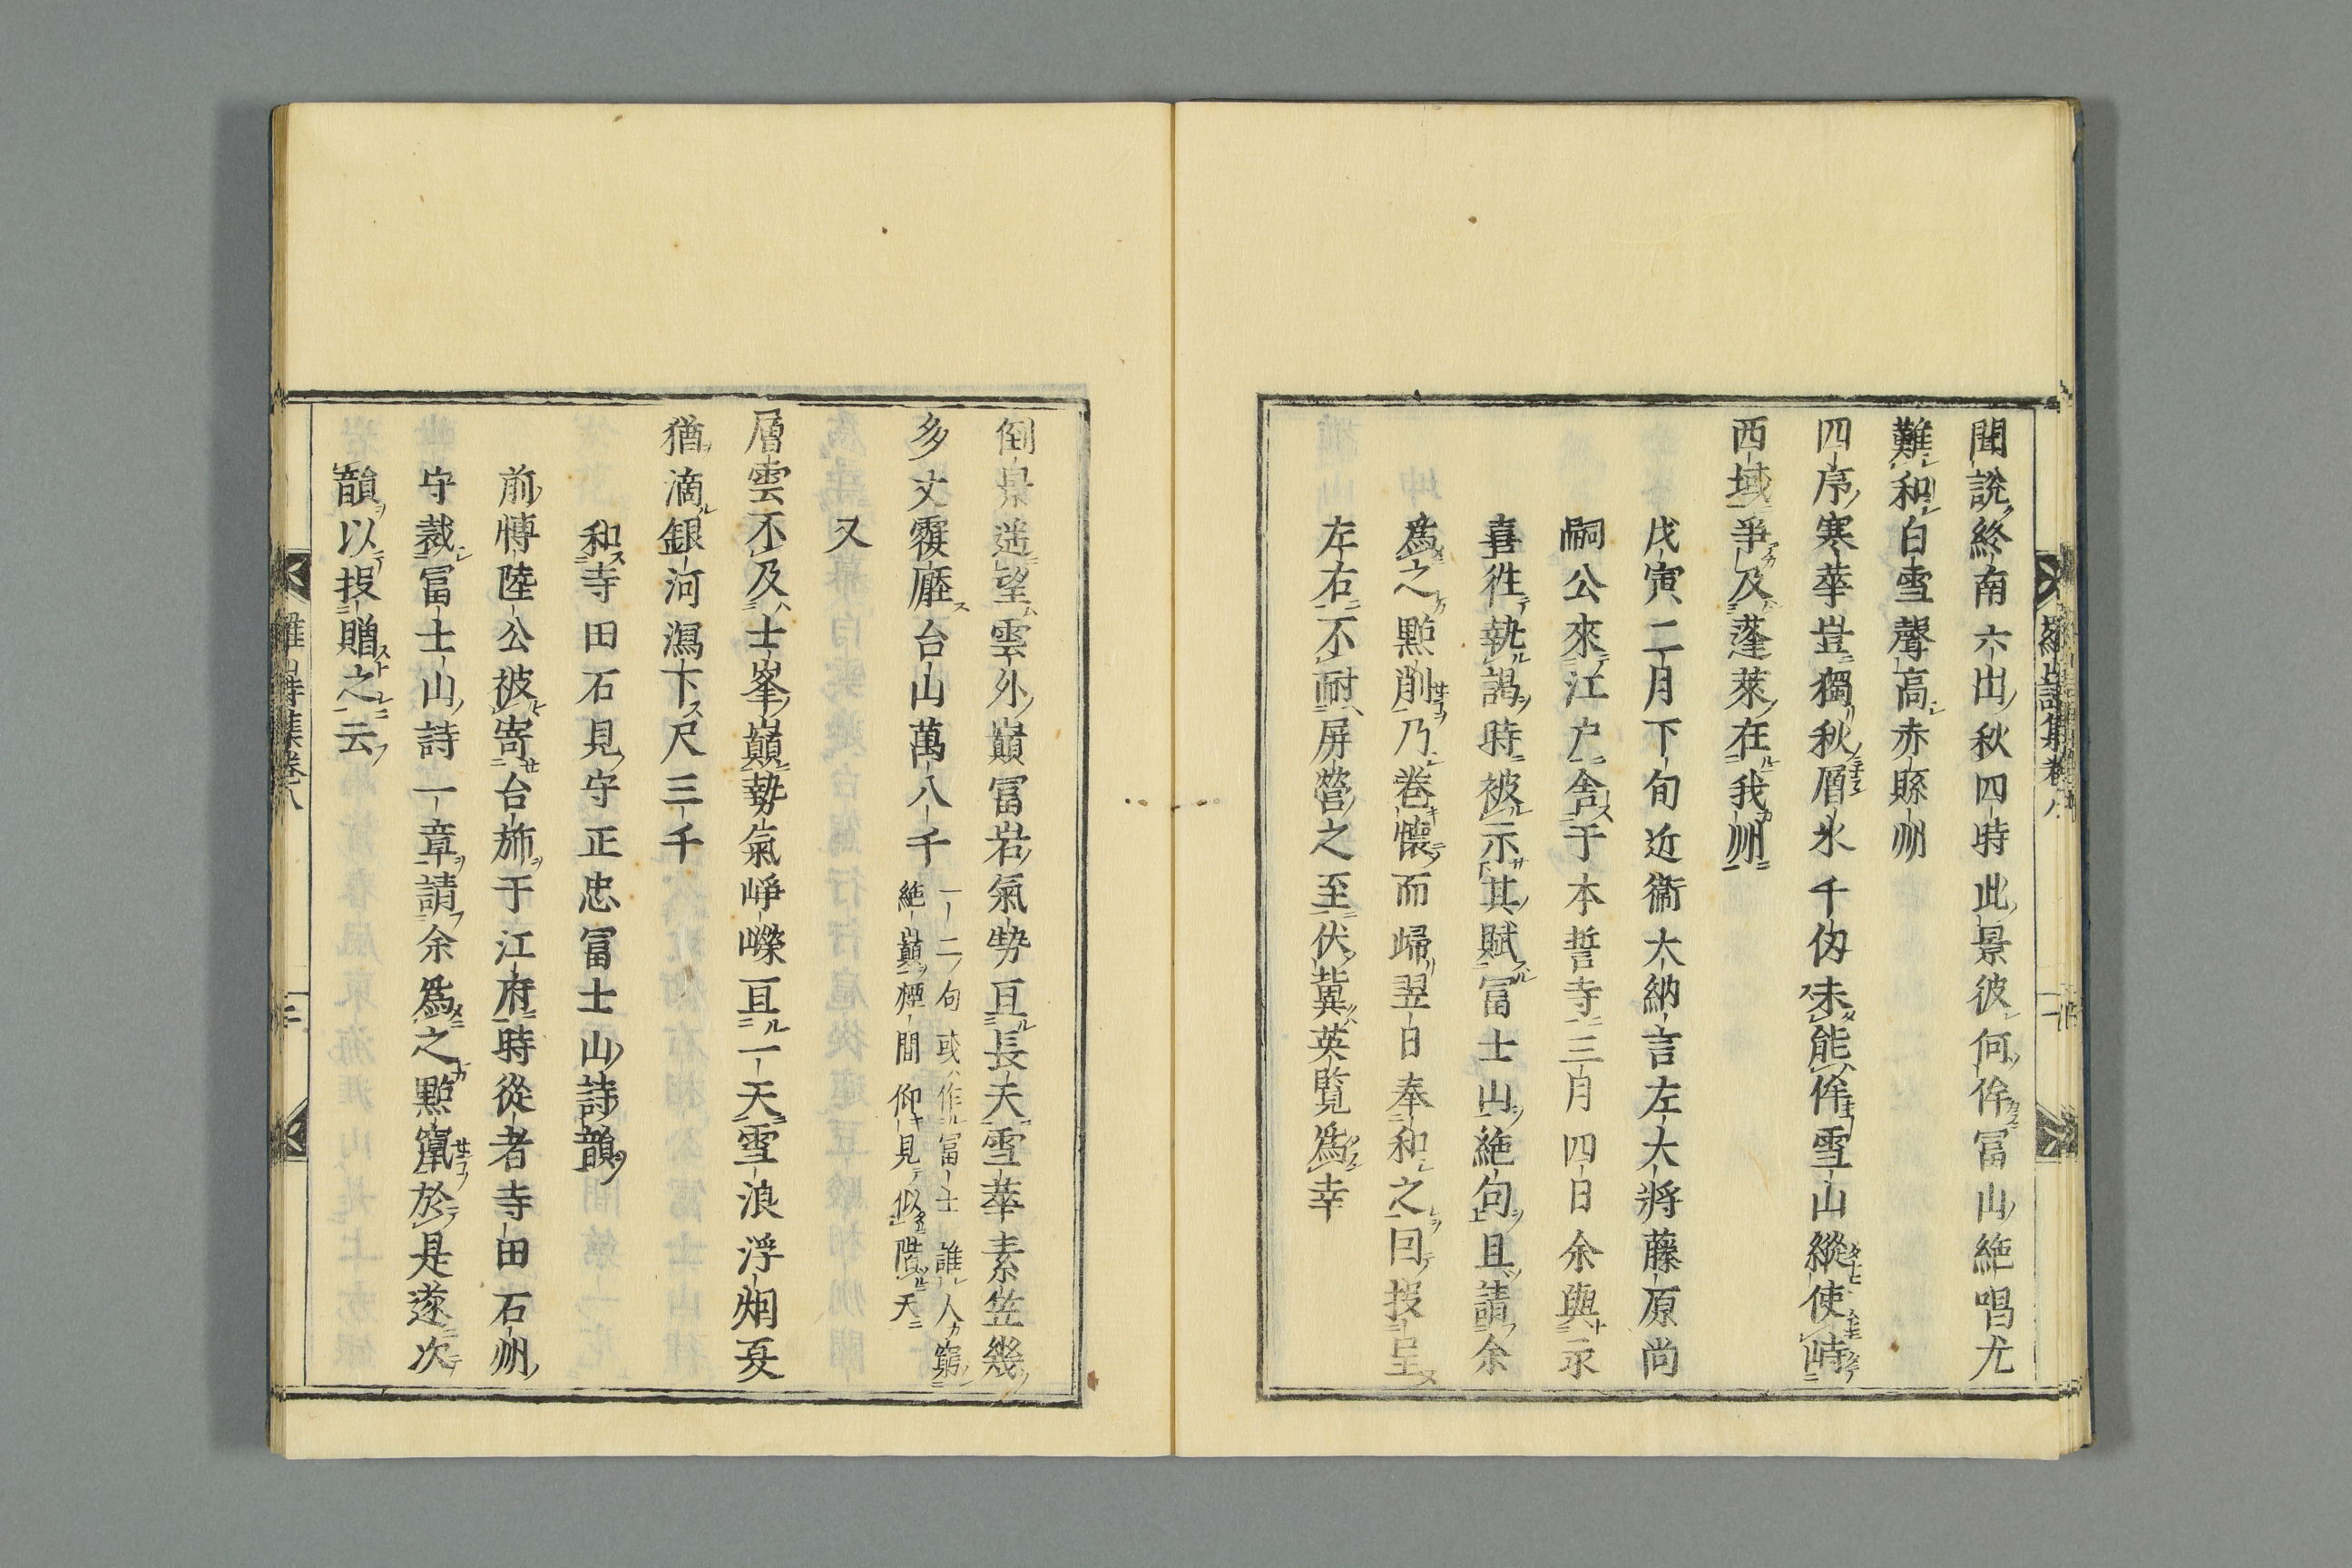 聞說終南六出秋四時此景彼何侔冨山絶唱尤
難和白雪聲高赤縣州
四序寒華豈獨秋層氷千仭未能侔雪山縱使時
西域爭及蓬萊在我州
戊寅二月下旬近衞大納言左大將藤原尚
嗣公來江户舎于本誓寺三月四日余與永
喜徃執謁時被示其賦冨士山絶句且請余
爲之點削乃巻懷而歸翌日奉和之囙投呈
左右不耐屏營之至伏冀英覧爲幸
倒景遥望雲外巔冨岩氣勢亘長天雪華素笠幾
多丈覆壓台山萬八千
一二句或作冨士誰人窮
絶巔煙間仰見似陞天
又
層雲不及士峯巔勢氣崢嶸亘一天雪浪浮烟夏
猶滴銀河瀉下尺三千
和寺田石見守正忠冨士山詩韻
前愽陸公被寄台斾于江府時從者寺田石州
守裁冨士山詩一章請余爲之點竄於是遂次
韻以投贈之云
羅山詩集卷八